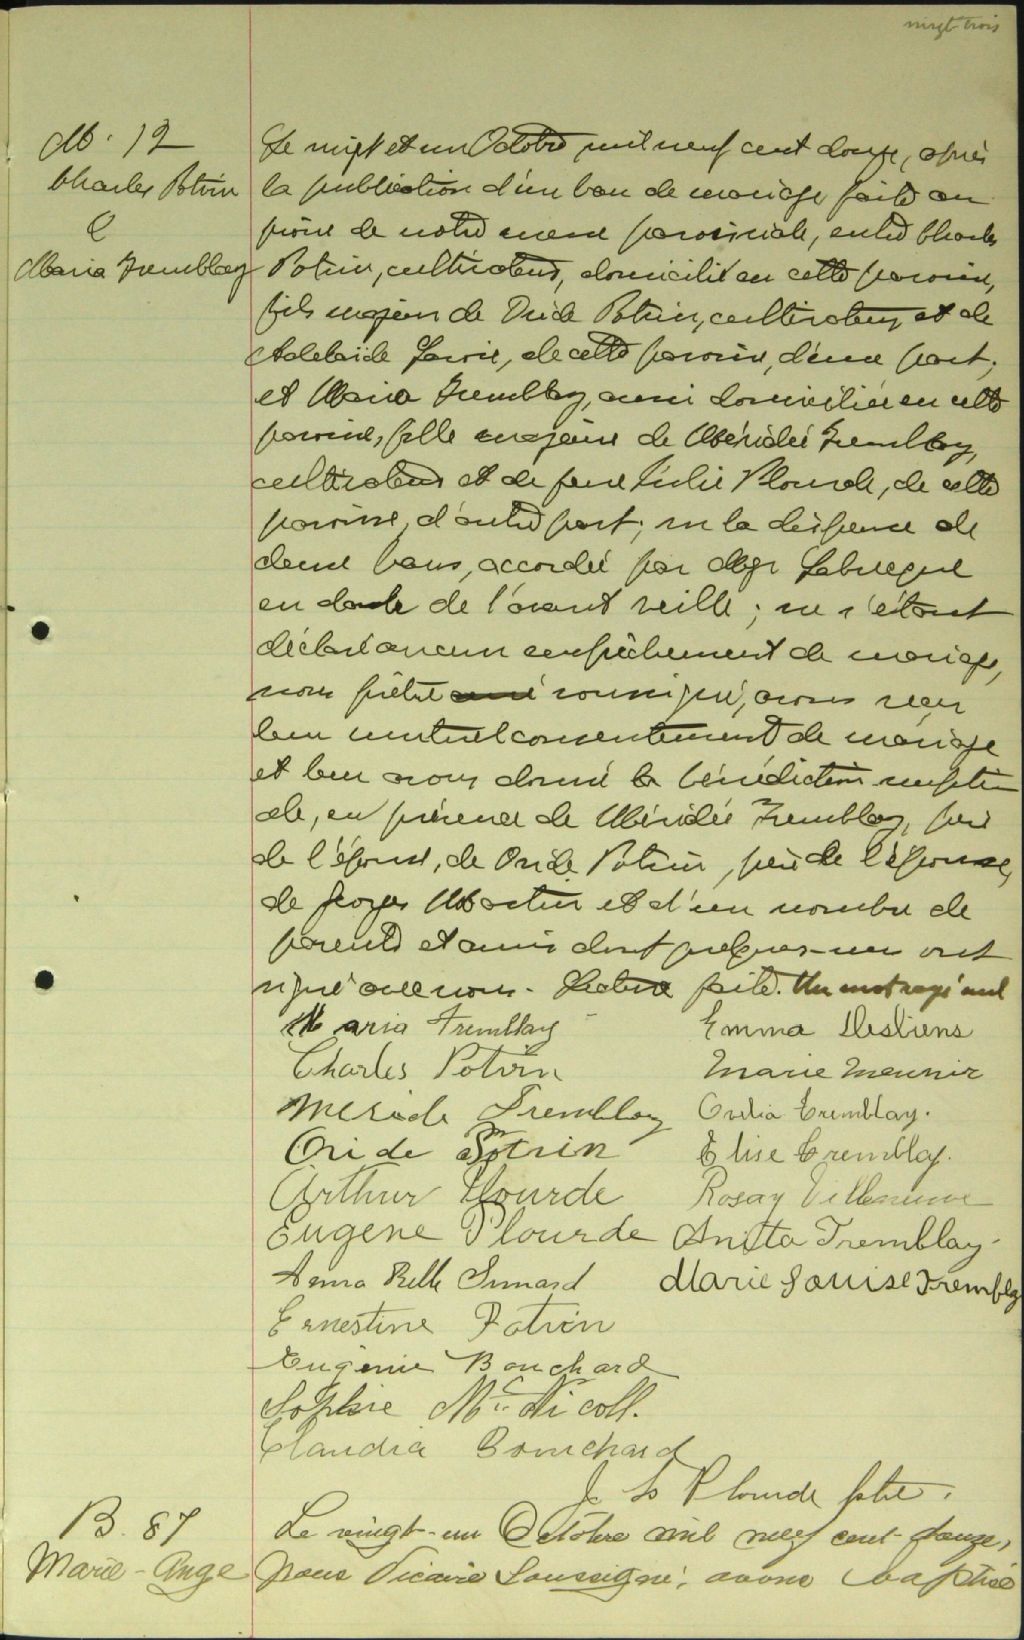 vingt-trois
M. 12
Charles Potvin
&
Maria Tremblay
Le vingt et un Octobre, mil neuf cent douze, après
la publication d'un ban de mariage faite au
prône de notre messe paroissiale, entre Charles
Potvin, cultivateur, domicilié en cette paroisse,
fils majeur de Ovide Potvin, cultivateur, et de
Adelaide Savoie, de cette paroisse, d'une part;
et Maria Tremblay, aussi domiciliée en cette
paroisse, fille majeure de Méridée Tremblay,
cultivateur et de feue Julie Plourde, de cette
paroisse, d'autre part; vu la dispense de
deux bans, accordée par Mgr Labrecque
en date de l'avant veille; ne s'étant
déclaré aucun empêchement de mariage,
nous prêtre curé soussigné, avons reçu
leur mutuel consentement de mariage
et leur avons donné la bénédiction nuptia
ale, en présence de Méridée Tremblay, père
de l'épouse, de Ovide Potvin, père de l'épouse,
de Georges Martin et d'un nombre de
parents et amis dont quelques-uns ont
signé avec nous. Lecture faite. Un mot rayé nul
Maria Tremblay
Emma Desbiens
Charles Potvin
Marie Meunier
Meride Tremblay
Ovilia Tremblay.
Ovide Potvin
Elise Tremblay.
Arthur Plourde
Rosay Villeneuve
Eugene Plourde
Anita Tremblay
Anna Belle Simard
Marie Louise Tremblay
Ernestine Potvin
Eugénie Bouchard
Sophie McNicoll.
Claudia Bouchard
J. S Plourde ptre.
B. 87
Marie-Ange
Le vingt-un Octobre mil neuf cent-douze,
nous Vicaire Soussigné, avons baptisé